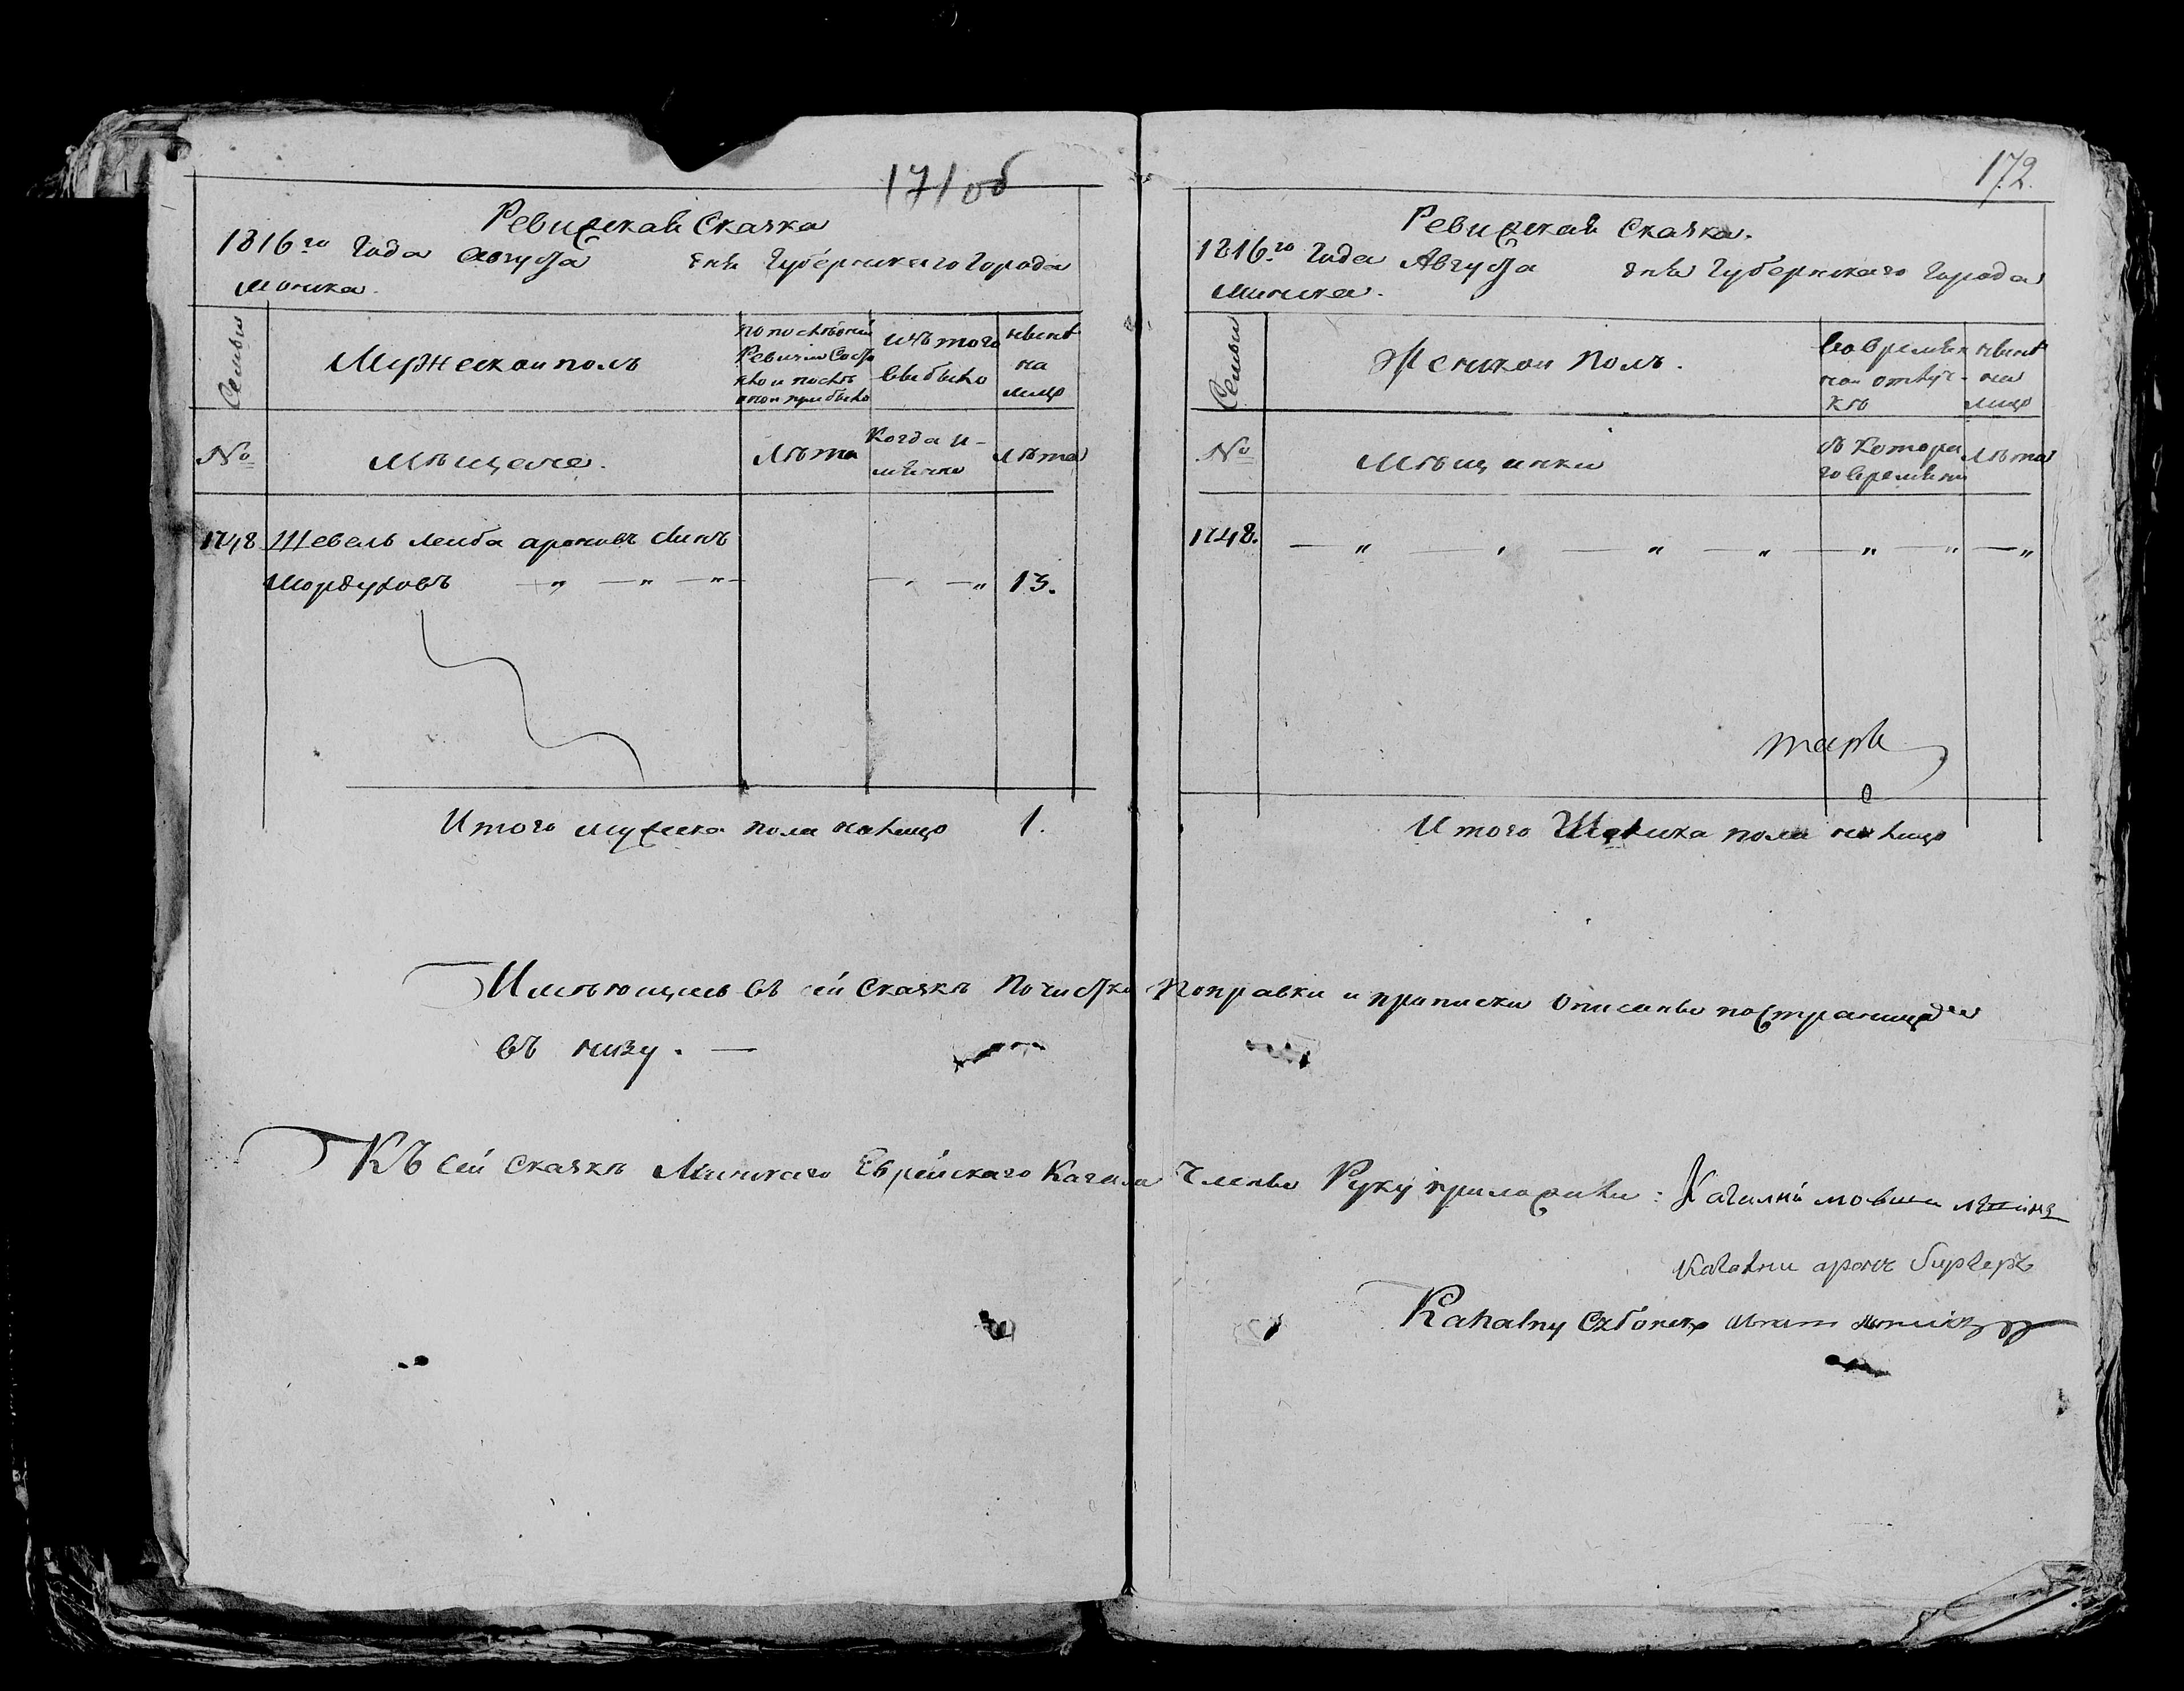 171 об
Ревижская Скаска
1816го Года августа дня Губернскаго Города
Минска.
Семьи
Мужескои полъ
по последней
Ревизии Состо
яло и после
оной прибыло
изъ того
выбыло
ныне
на
лицо
№
Мещане.
Лета
Когда и-
мянно
Лета
1748 Шевель Лейба ароновъ сынъ
Мордуховъ 13.
Итого мужеска пола налицо 1.
172.
Ревижская Скаска.
1816.го Года Августа дня Губернскаго Города
Минска.
Семьи
Женскои Полъ.
во времян
ной отлуч-
ке
ныне
на
лицо
№
Мещанки
съ Котора
го времяни
Лета
1748.
Итого Женска пола налицо
Имеющиеся въ сей Скаске Почистки Поправки и приписки Описаны по Страницам
въ низу.
Къ сей Скаске Минскаго Еврейскаго Кагала Члены Руку приложили: Кагалный мовша
Кагалны аронъ
Kahalny